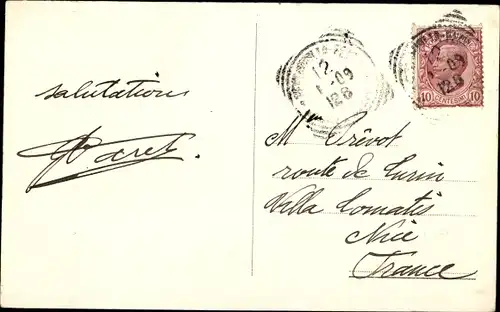 salutations
M Prévot
route de Turin
Villa Comatis
Nice
France
12
09
12 6
10 CENTESIMI 10